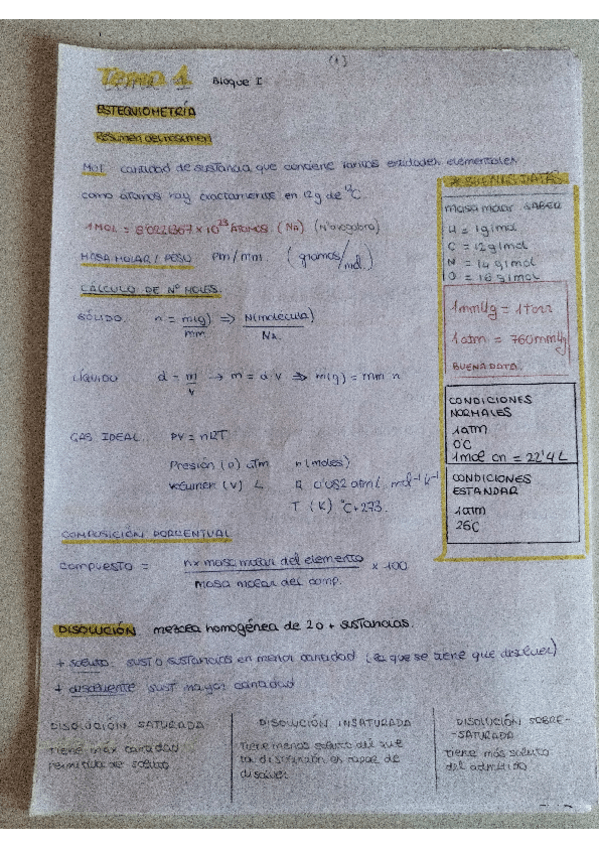 (1)
Tema 1 Bloque I
ESTEQUIOMETRÍA
Resumen del resumen
Mol cantidad de sustancia que contiene tantas entidades elementales
como átomos hay exactamente en 12g de ¹²C.
1 MOL = 6'0221367 × 10²³ ÁTOMOS (NA) (nº avogadro)
MASA MOLAR / PESO Pm/mm. (gramos/mol.)
CÁLCULO DE Nº MOLES.
SÓLIDO. n = m(g)/mm ⇒ N(molécula)/NA
LÍQUIDO d = m/v → m = d·v ⇒ m(g) = mm n
GAS IDEAL... PV = nRT
Presión (P) atm n (moles)
Volumen (V) L R 0'082 atm L mol⁻¹ K⁻¹
T (K) °C+273.
COMPOSICIÓN PORCENTUAL
compuesto = n × masa molar del elemento / masa molar del comp. × 100
DISOLUCIÓN mezcla homogénea de 2 o + sustancias.
+ soluto. sust o sustancias en menor cantidad (la que se tiene que disolver)
+ disolvente sust mayor cantidad
DISOLUCIÓN SATURADA
Tiene max cantidad
permitida de soluto
DISOLUCIÓN INSATURADA
Tiene menos soluto del que
la disolución es capaz de
disolver
DISOLUCIÓN SOBRE-
-SATURADA
tiene más soluto
del admitido
masa molar SABER
H = 1g/mol
C = 12g/mol
N = 14 g/mol
O = 16 g/mol
1mmHg = 1Torr
1atm = 760mmHg
BUENA DATA.
CONDICIONES
NORMALES
1atm
0°C
1mol cn = 22'4 L
CONDICIONES
ESTANDAR
1atm